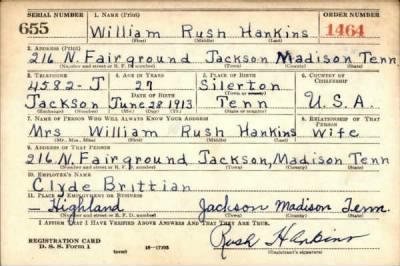 SERIAL NUMBER 1. NAME (Print) ORDER NUMBER
655 William Rush Hankins 1464
(First) (Middle) (Last)
2. ADDRESS (Print)
216 N. Fairground Jackson Madison Tenn.
(Number and street or R. F. D. number) (Town) (County) (State)
3. TELEPHONE 4. AGE IN YEARS 5. PLACE OF BIRTH 6. COUNTRY OF CITIZENSHIP
4582-J 27 Silerton
(Town or county)
DATE OF BIRTH
Jackson June 28 1913 Tenn U.S.A.
(Exchange) (Number) (Mo.) (Day) (Yr.) (State or country)
7. NAME OF PERSON WHO WILL ALWAYS KNOW YOUR ADDRESS 8. RELATIONSHIP OF THAT PERSON
Mrs William Rush Hankins Wife
(Mr., Mrs., Miss) (First) (Middle) (Last)
9. ADDRESS OF THAT PERSON
216 N. Fairground Jackson, Madison Tenn
(Number and street or R. F. D. number) (Town) (County) (State)
10. EMPLOYER'S NAME
Clyde Brittian
11. PLACE OF EMPLOYMENT OR BUSINESS
Highland Jackson Madison Tenn.
(Number and street or R. F. D. number) (Town) (County) (State)
I AFFIRM THAT I HAVE VERIFIED ABOVE ANSWERS AND THAT THEY ARE TRUE.
REGISTRATION CARD
D. S. S. Form 1 (over) 16-17105 Rush Hankins
(Registrant's signature)